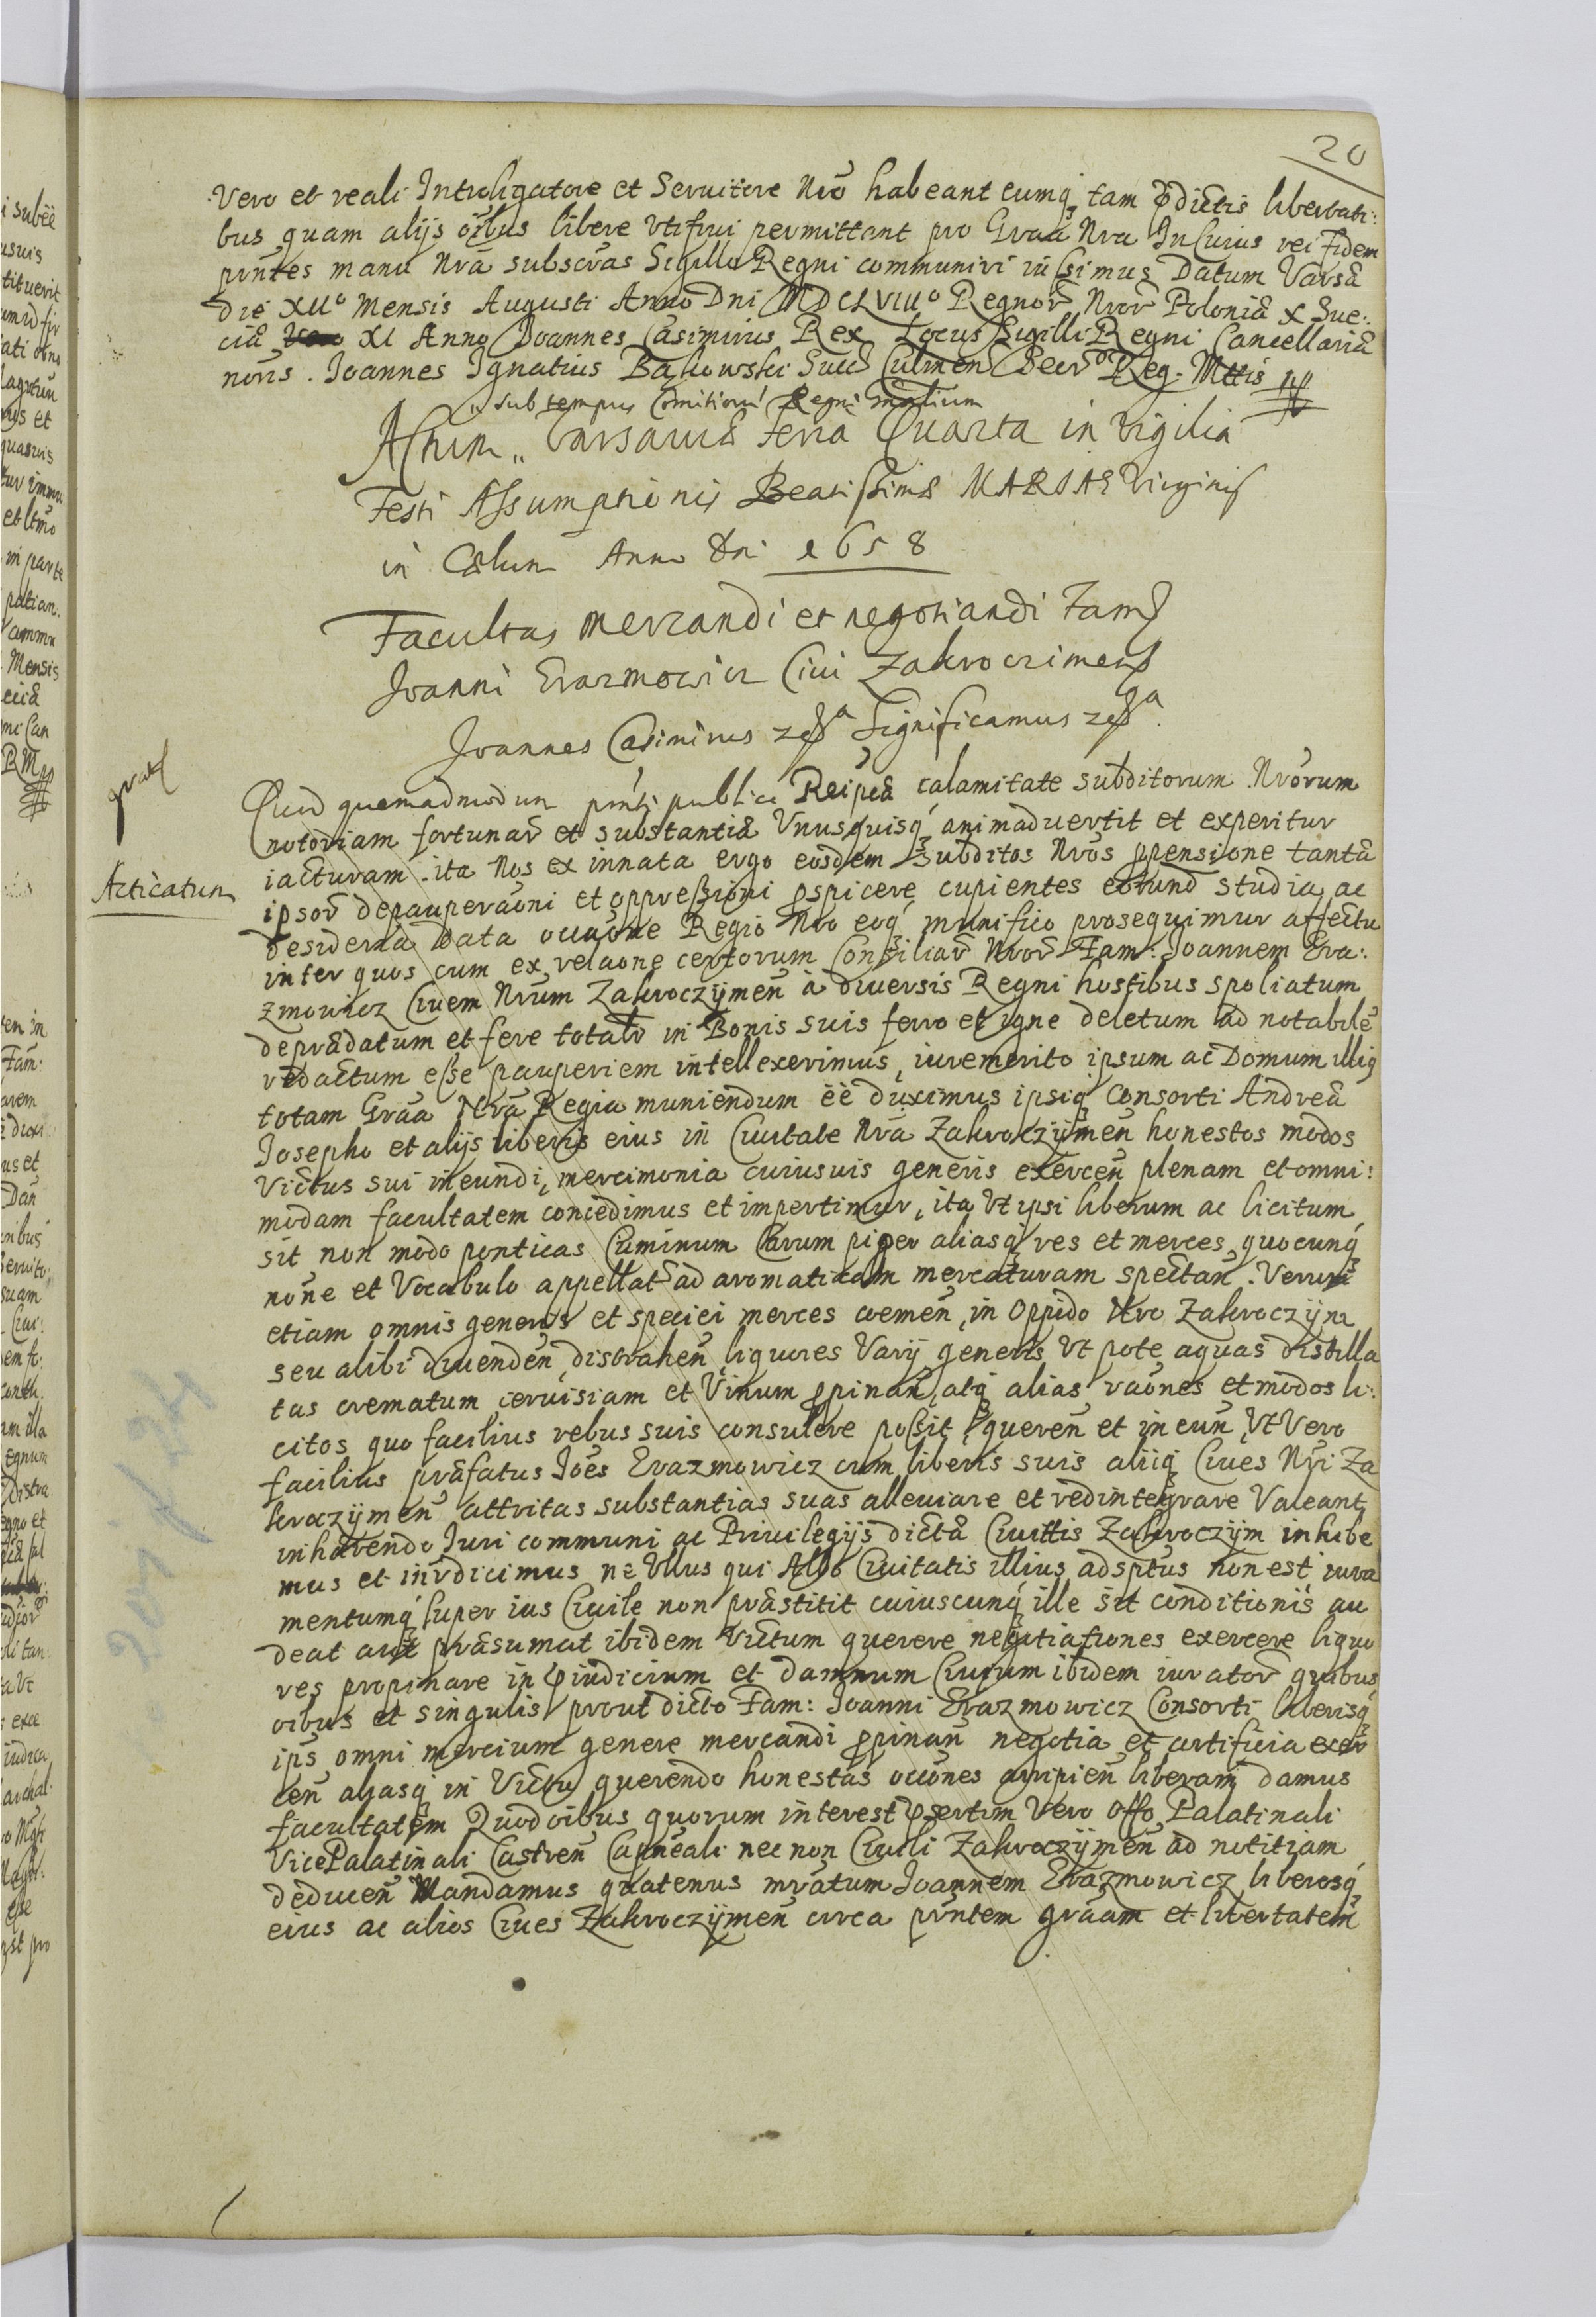 20
Vero et reali Introligatore et Seruitore Nrõ habeant eumq tam p̃dictis libertati:
bus quam alijs oĩbus libere Vtifrui permittant pro Graa Nra In Cuius rei fidem
pñtes manu Nrã subscr̃as Sigillo Regni communiri iussimus Datum Varsã
die XIIº Mensis Augusti Anno Dni MDCLVIIIº Regnor̃ Nror̃ Poloniæ X Sue:
ciæ XI Anno Joannes Casimirus Rex Locus Sigilli Regni Cancellariæ
noris. Joannes Ignatius Bąkowski Succ Culmen Secr Reg. Mttis
sub tempus Comitioru Regni Gnalium
Actum Varsauiæ Feria Quarta in Vigilia
Festi Assumptionis Beatissimæ MARIAE Virginis
in Cælum Anno Dni 1658
Facultas mercandi et negotiandi Fam
Joanni Erazmowicz Ciui Zakrocrimens
Joannes Casimirus Significamus
Quod quemadmodum pnti publica Reipcæ calamitate subditorum Nrorum
notoriam fortunar̃ et substantiæ Vnusquisq animaduertit et experitur
Acticatum
iacturam. ita Nos ex innata ergo eosdem subditos Nrõs ppensione tantæ
ipsor̃ depauperaoni et oppressioni pspicere cupientes eorund studia ac
desideria Data occaone Regio Nro eoq munifico prosequimur affectu
inter quos cum ex relaone certorum Consiliar̃ Nror̃ Fam: Joannem Era:
zmowicz Ciuem Nrũm Zakroczÿmeñ à diuersis Regni hostibus spoliatum
deprædatum et fere totalr in Bonis suis ferro et igne deletum ad notabilẽ
redactum esse pauperiem intellexerimus, iure merito ipsum ac Domum illiq
totam Graa Nrã Regia muniendum ẽẽ duximus ipsiq Consorti Andreæ
Josepho et alijs liberis eius in Ciuitate Nrã Zakroczÿmeñ honestos modos
Victus sui ineundi, mercimonia cuiusuis generis exerceñ plenam et omni:
modam facultatem concedimus et impertimur, ita Vt ipsi liberum ac licitum
sit non modo ponticas Cuminum Carum piper aliasq res et merces quocunq
noñe et Vocabulo appellat ad aromaticam mercaturam spectañ. Verum
etiam omnis generis et speciei merces coemeñ, in Oppido Nro Zakroczÿm
seu alibi diuendeñ, distraheñ, liquores Varij generis Vt pote aquas distilla
tas crematum ceruisiam et Vinum ppinañ, atq alias raones et modos li:
citos quo facilius rebus suis consulere possit quereñ et ineuñ, Vt Vero
facilius præfatus Joẽs Erazmowicz cum liberis suis alijq Ciues Nri Za
kroczÿmeñ attritas substantias suas alleuiare et redintegrare Valeant
inhærendo Juri communi ac Priuilegijs dictæ Ciuittis Zakroczÿm inhibe
mus et inrdicimus ne Vllus qui Albo Ciuitatis illius adsptus non est iura
mentumq super ius Ciuile non præstitit cuiuscunq ille sit conditionis au
deat aut præsumat ibidem Victum querere negotiationes exercere liquo
res propinare in p̃iudicium et damnum Ciuium ibidem iurator̃ quibus
oĩbus et singulis prout dicto Fam: Joanni Erazmowicz Consorti liberisq
ipš omni mercium genere mercandi ppinañ negotia et artificia exer
ceñ aliasq in Victu querendo honestas occõnes arripieñ liberam damus
facultatem Quod oĩbus quorum interest p̃sertim Vero Offo Palatinali
VicePalatinali Castreñ Capneali nec non Ciuili Zakroczÿmeñ ad notitiam
deduceñ Mandamus quatenus mr̃atum Joannem Erazmowicz liberosq
eius ac alios Ciues Zakroczÿmeñ circa p̃ntem graam et libertatem